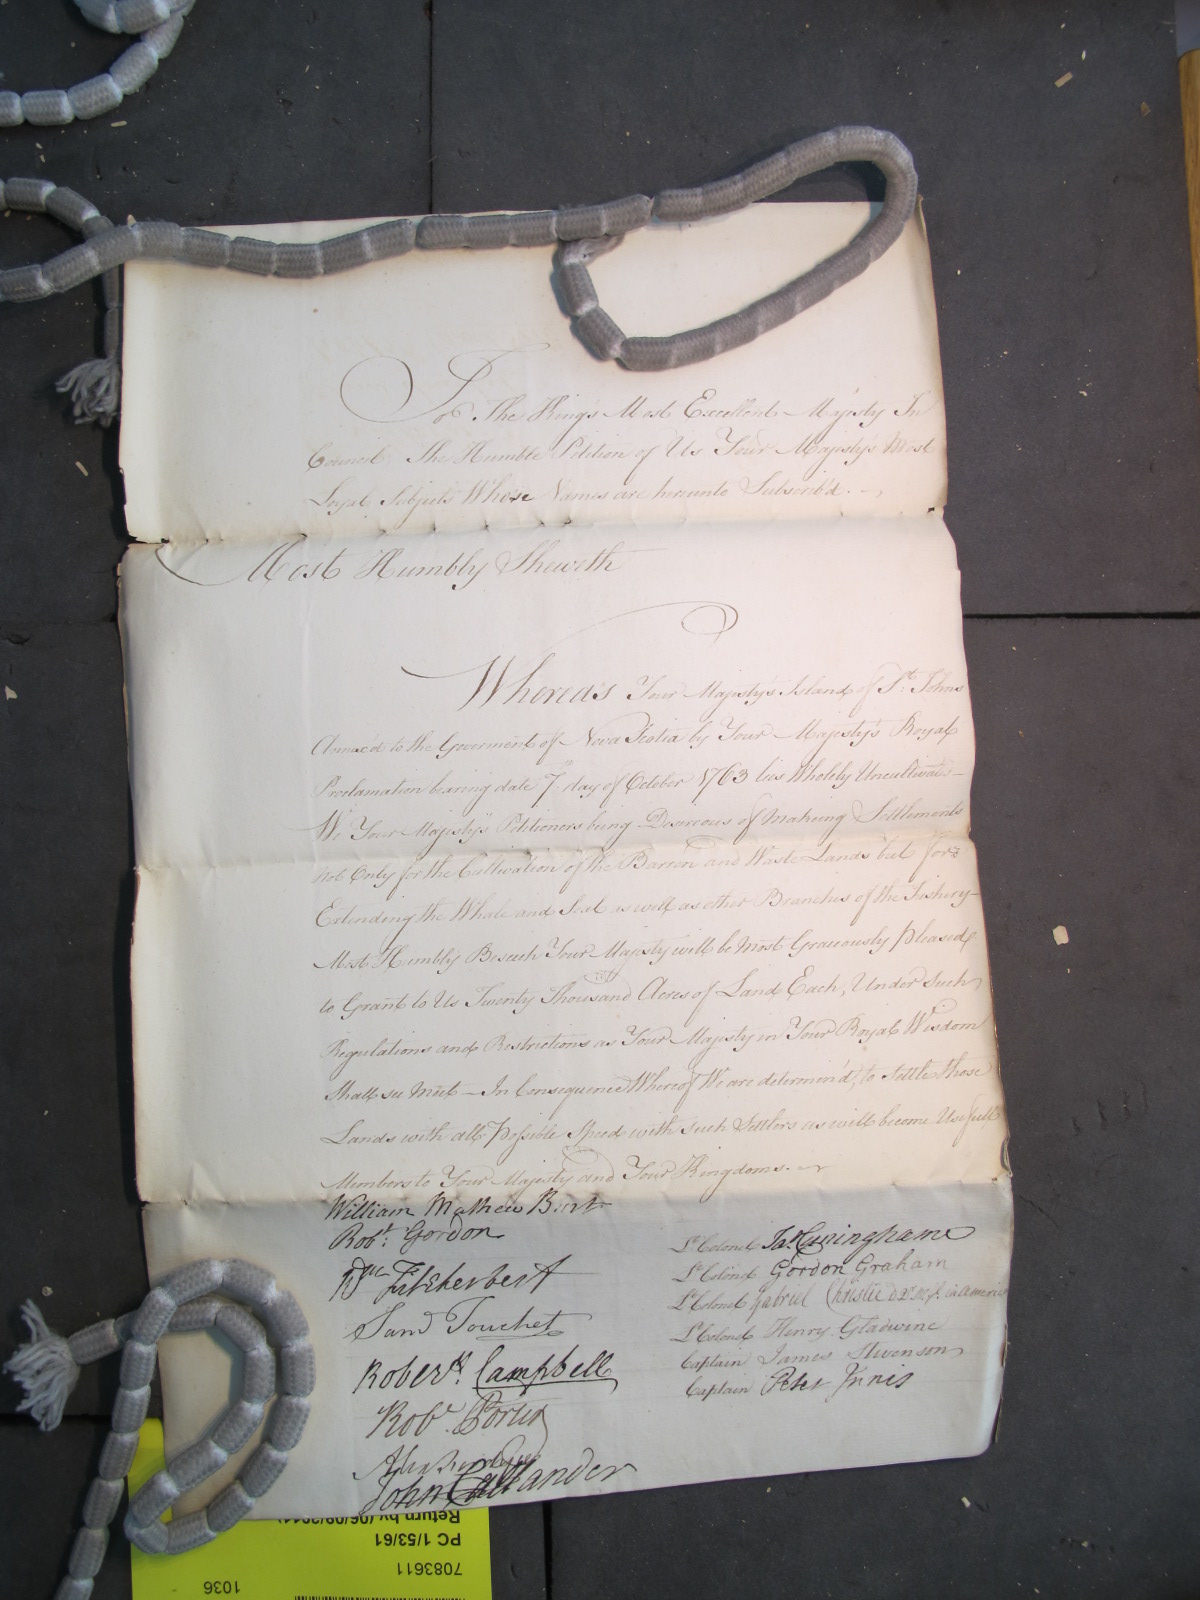 To The King's Most Excellent Majesty In
Council The Humble Petition of Us Your Majesty's Most
Loyal Subjects Whose Names are hereunto Subscrib'd.
Most Humbly Sheweth
Whereas Your Majesty's Island of St. Johns
Annac'd to the Goverment of Nova Scotia by Your Majesty's Royal
Proclamation bearing date 7th day of October 1763 lies Wholely
We Your Majesty's Petitioners being Desireous of Making Settlements
not Only for the Cultivation of the Barren and Waste Lands but for
Extending the Whale and Seal as well as other Branches of the Fishery
Most Humbly Beseech Your Majesty will be Most Graciously pleased
to Grant to Us Twenty Thousand Acres of Land Each, Under such
Regulations and Restrictions as Your Majesty in Your Royal Wisdom
Shall see meet - In Consequence Whereof We are determin'd, to Settle those
Lands with all Possible Speed with such Settlers as will become Usefull
Members to Your Majesty and Your Kingdoms.
William Mathew Burt
Robt. Gordon
Wm. Fitzherbert
Saml Touchet
Robert Campbell
Robt. Porter
John Callander
Lt Colonel Jas Cuninghame
Lt Colonel Gordon Graham
Lt Colonel Gabriel Christie in America
Lt Colonel Henry Gladwine
Captain James Stevenson
Captain Peter Innis
Return by (06/09/2011)
PC 1/53/61
7083611
1036